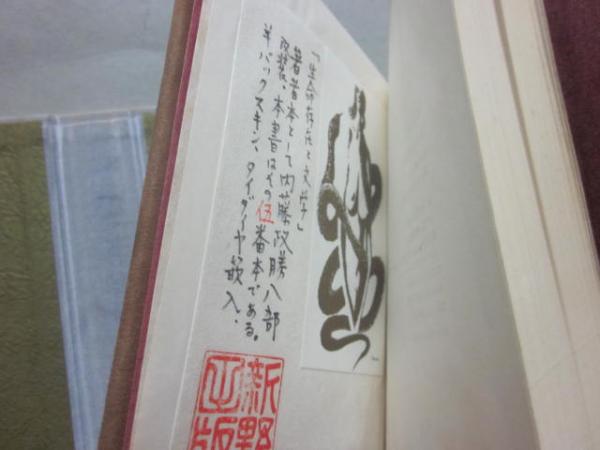 「生命存在と文学」
著者本として内藤政勝八部
改装、本書はその伍番本である。
羊バックスキン、タイダイヤ嵌入.
新野
出版